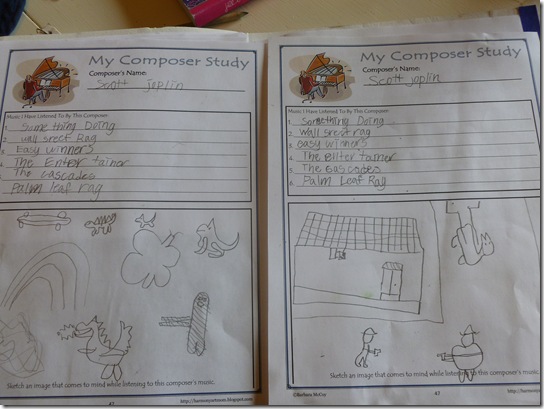 My Composer Study
Composer's Name:
Scott Joplin
Music I Have Listened To By This Composer:
1. Something Doing
2. wall sreet Rag
3. Easy winners
4. The Enter tainer
5. The cascades
6. Palm leaf rag
Sketch an image that comes to mind while listening to this composer's music.
http://harmonyartmom.blogspot.com
47
My Composer Study
Composer's Name:
Scott Joplin
Music I Have Listened To By This Composer:
1. Something Doing
2. Wall sreet rag
3. easy winners
4. The Enter tainer
5. The Cascades
6. Palm Leaf Rag
Sketch an image that comes to mind while listening to this composer's music.
©Barbara McCoy
47